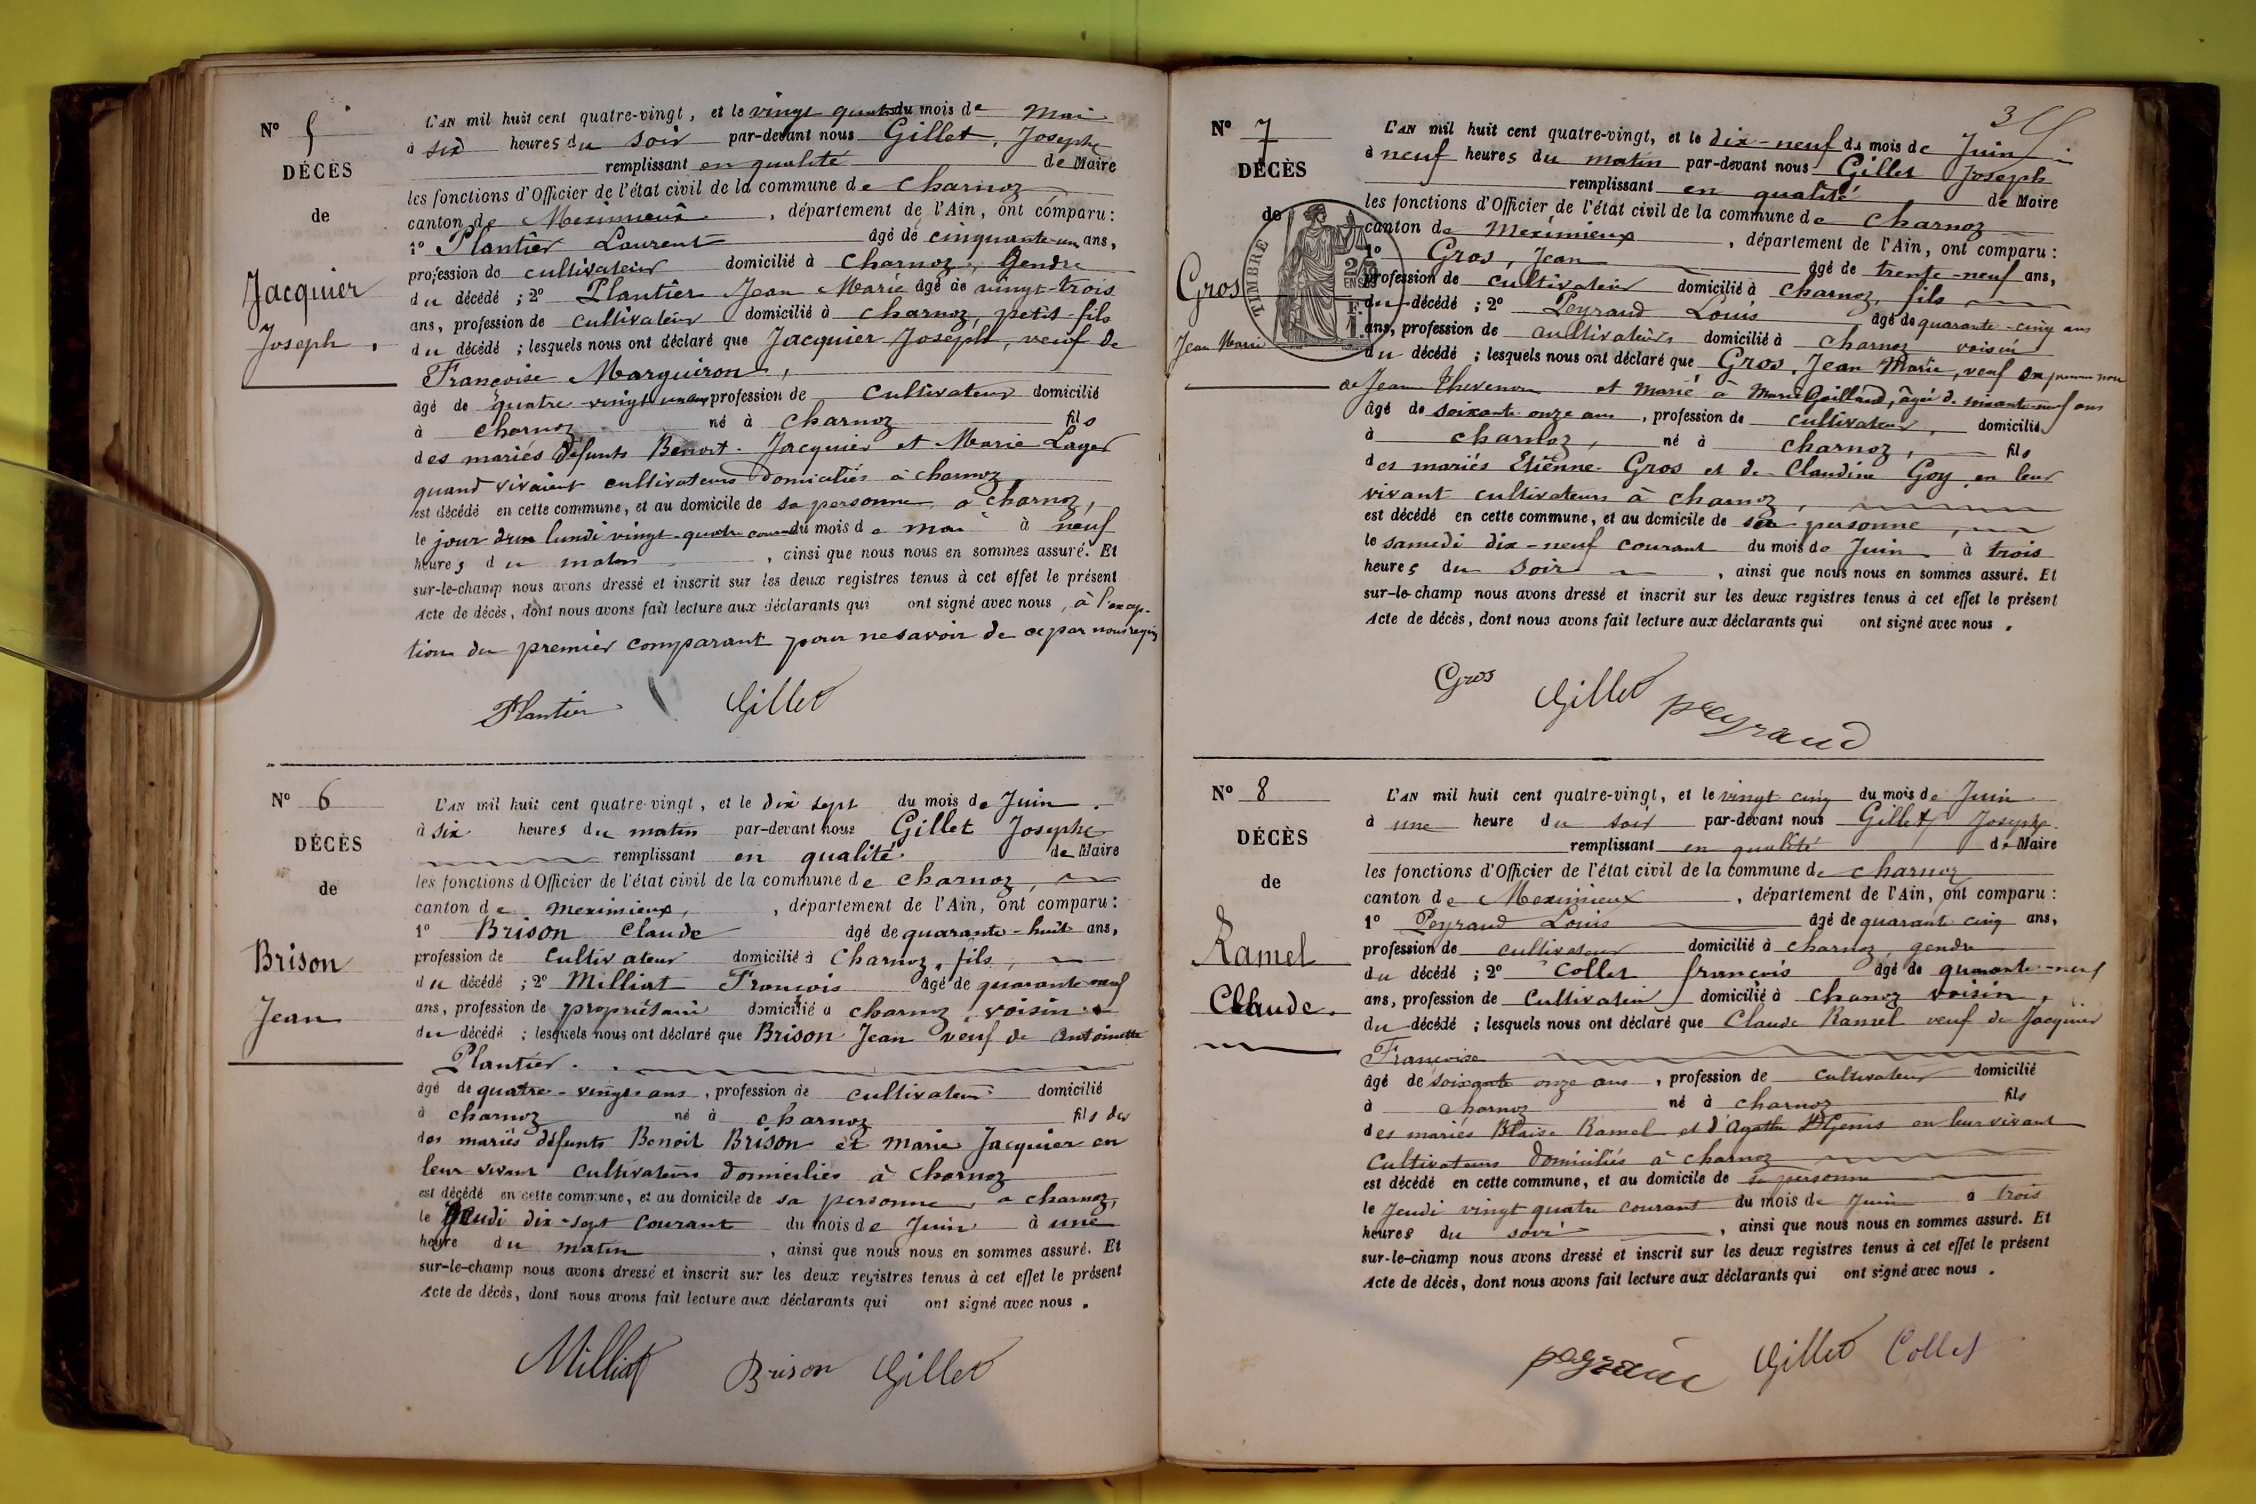 N° 5
DÉCÈS
de
Jacquier
Joseph.
L'AN mil huit cent quatre-vingt, et le vingt quatre du mois de Mai
à six heures du soir par-devant nous Gillet, Joseph
remplissant en qualité de Maire
les fonctions d'Officier de l'état civil de la commune de Charnoz
canton de Meximieux, département de l'Ain, ont comparu:
1° Plantier Laurent âgé de cinquante-un ans,
profession de cultivateur domicilié à Charnoz, Gendre
du décédé ; 2° Plantier Jean Marie âgé de vingt-trois
ans, profession de cultivateur domicilié à Charnoz, petit-fils
du décédé ; lesquels nous ont déclaré que Jacquier Joseph, veuf de
Françoise Marguiron,
âgé de quatre-vingt profession de cultivateur domicilié
à Charnoz né à Charnoz fils
des mariés défunts Benoit Jacquier et Marie Lager
quand vivaient cultivateurs domiciliés à Charnoz
est décédé en cette commune, et au domicile de sa personne à Charnoz,
le jour d'un lundi vingt-quatre courant du mois de mai à neuf
heures du matin, ainsi que nous nous en sommes assuré. Et
sur-le-champ nous avons dressé et inscrit sur les deux registres tenus à cet effet le présent
Acte de décès, dont nous avons fait lecture aux déclarants qui ont signé avec nous, à l'excep-
tion du premier comparant pour ne savoir de ce par nous requis
Plantier Gillet
N° 6
DÉCÈS
de
Brison
Jean
L'AN mil huit cent quatre-vingt, et le dix sept du mois de Juin.
à six heures du matin par-devant nous Gillet Joseph
remplissant en qualité de Maire
les fonctions d'Officier de l'état civil de la commune de Charnoz,
canton de Meximieux, département de l'Ain, ont comparu:
1° Brison Claude âgé de quarante-huit ans,
profession de cultivateur domicilié à Charnoz, fils,
du décédé ; 2° Milliat François âgé de quarante neuf
ans, profession de propriétaire domicilié à Charnoz, voisin
du décédé ; lesquels nous ont déclaré que Brison Jean veuf de Antoinette
Plantier.
âgé de quatre-vingts ans, profession de cultivateur domicilié
à Charnoz né à Charnoz fils des
des mariés défunts Benoit Brison et Marie Jacquier en
leur vivant cultivateurs domiciliés à Charnoz
est décédé en cette commune, et au domicile de sa personne à Charnoz,
le Jeudi dix-sept courant du mois de Juin à une
heure du matin, ainsi que nous nous en sommes assuré. Et
sur-le-champ nous avons dressé et inscrit sur les deux registres tenus à cet effet le présent
Acte de décès, dont nous avons fait lecture aux déclarants qui ont signé avec nous.
Milliat Brison Gillet
N° 7
DÉCÈS
de
TIMBRE
Gros
Jean Marie
L'AN mil huit cent quatre-vingt, et le dix-neuf du mois de Juin
à neuf heures du matin par-devant nous Gillet Joseph
remplissant en qualité de Maire
les fonctions d'Officier de l'état civil de la commune de Charnoz
canton de Meximieux, département de l'Ain, ont comparu:
1° Gros, Jean âgé de trente-neuf ans,
profession de cultivateur domicilié à Charnoz, fils
du décédé ; 2° Peyraud Louis âgé de quarante-cinq ans
ans, profession de cultivateur domicilié à Charnoz voisin
du décédé ; lesquels nous ont déclaré que Gros, Jean Marie, veuf
de Jean Thevenon et Marié à Marie Gaillard, âgée de soixante-neuf ans
âgé de soixante-onze ans, profession de cultivateur, domicilié
à Charnoz, né à Charnoz, fils
des mariés Etienne Gros et de Claudine Goy en leur
vivant cultivateurs à Charnoz,
est décédé en cette commune, et au domicile de sa personne,
le samedi dix-neuf courant du mois de Juin à trois
heures du soir, ainsi que nous nous en sommes assuré. Et
sur-le-champ nous avons dressé et inscrit sur les deux registres tenus à cet effet le présent
Acte de décès, dont nous avons fait lecture aux déclarants qui ont signé avec nous.
Gros Gillet peyraud
N° 8
DÉCÈS
de
Ramel
Claude.
L'AN mil huit cent quatre-vingt, et le vingt cinq du mois de Juin
à une heure du soir par-devant nous Gillet, Joseph
remplissant en qualité de Maire
les fonctions d'Officier de l'état civil de la commune de Charnoz
canton de Meximieux, département de l'Ain, ont comparu:
1° Peyraud Louis âgé de quarante cinq ans,
profession de cultivateur domicilié à Charnoz, gendre
du décédé ; 2° Collet françois âgé de quarante-neuf
ans, profession de Cultivateur domicilié à Charnoz voisin,
du décédé ; lesquels nous ont déclaré que Claude Ramel veuf de Jacquier
Françoise
âgé de soixante onze ans, profession de cultivateur domicilié
à Charnoz né à Charnoz fils
des mariés Blaise Ramel et d'Agathe St Genis en leur vivant
Cultivateurs domiciliés à Charnoz
est décédé en cette commune, et au domicile de sa personne
le Jeudi vingt quatre courant du mois de Juin à trois
heures du soir, ainsi que nous nous en sommes assuré. Et
sur-le-champ nous avons dressé et inscrit sur les deux registres tenus à cet effet le présent
Acte de décès, dont nous avons fait lecture aux déclarants qui ont signé avec nous.
Gillet Collet